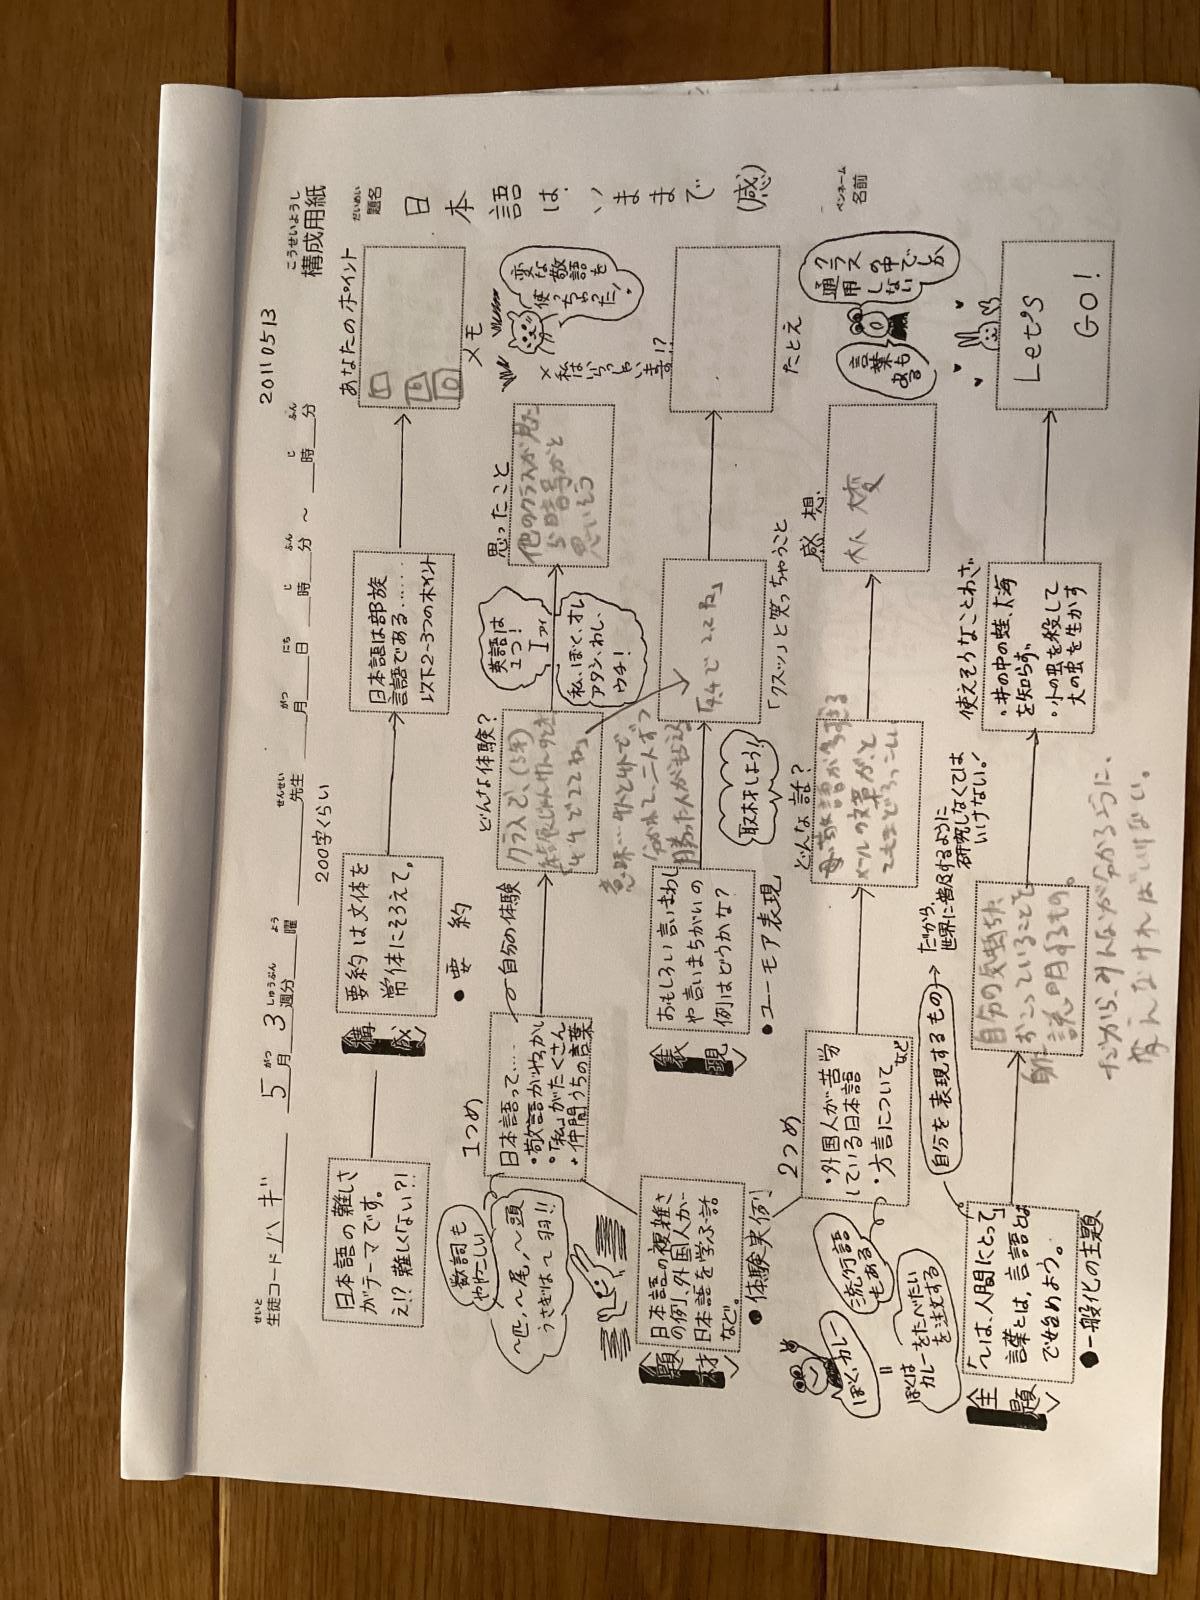 20110513
こうせいようし
構成用紙
せいと
生徒コード バ ギ 5月 3週分 曜 先生 月 日 時 分 ～ 時 分
がつ しゅうぶん よう せんせい がつ にち じ ふん じ ふん
200字くらい
あなたのポイント
だいめい
題名
日本語は、いままで
(感)
ペンネーム
名前
日本語の難しさ
がテーマです。
え!?難しくない?!
<構成>
要約は文体を
常体にそろえて。
●要 約
日本語は部族
言語である……
以下2~3つのポイント
メモ
1つめ
日本語って….
・敬語がわろかし
・「私」がたくさん
・仲間うちの言葉
数詞も
ややこしい
～匹、～尾、～頭
うさぎは～羽!!
自分の体験
どんな体験?
クラスで、(5年)
「44で22ね」
英語は
1つ!
I アイ
私、ぼく、オレ
アタシ、わし、
ウチ!
思ったこと
他のクラスが見た
ら暗号かと
思いそう
変な敬語を
使っちゃった!
×私は
いらっしゃい
ます!?
<題材>
日本語の複雑さ
の例、外国人が
日本語を学ぶ話
など。
●体験実例
<表現>
おもしろい言いまわし
や言いまちがいの
例はどうかな?
●ユーモア表現
勝った人がもらえる
取材しよう!
「44で22ね」
「クスッ」と笑っちゃうこと
たとえ
2つめ
・外国人が苦労
している日本語
・方言について
など
流行語
もある
ぼく、カレー
＝
ぼくは
カレーをたべたい
を注文する
どんな話?
感 想
大 変
クラス
の中
でしか
通用
しない
言葉も
ある
<主題>
「～は、人間にとって」
言葉とは、言語とは
で始めよう。
●一般化の主題
自分を表現するもの
だから、
世界に普及するように
研究しなくては
いけない!
自分の気持ちや
おこっていることを
説明するもの。
だから、みんなが分かるように、
なければいけない。
使えそうなことわざ
・井の中の蛙、大海
を知らず
・小の虫を殺して
大の虫を生かす
Let's
GO!